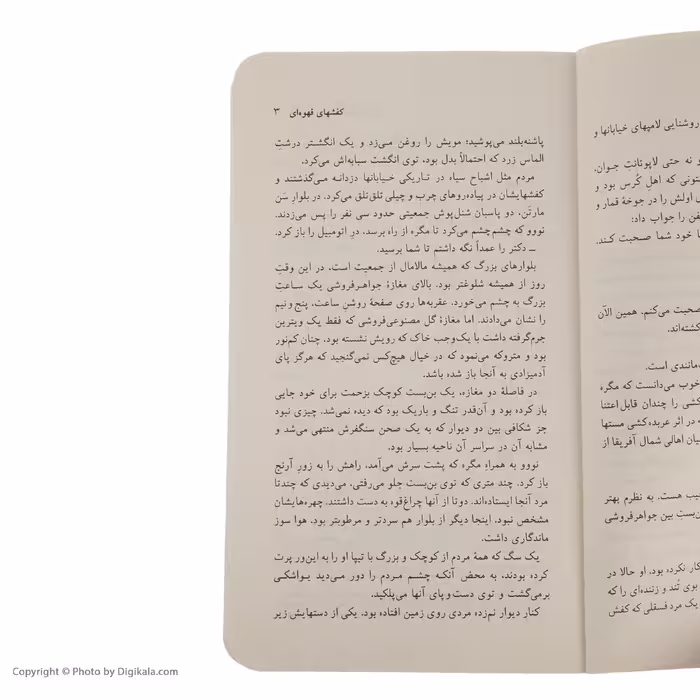 کفشهای قهوه‌ای ۳
پاشنه‌بلند می‌پوشید؛ مویش را روغن می‌زد و یک انگشتر درشتِ
الماس زرد که احتمالاً بدل بود، توی انگشت سبابه‌اش می‌کرد.
مردم مثل اشباح سیاه در تاریکی خیابانها دزدانه می‌گذشتند و
کفشهایشان در پیاده‌روهای چرب و چیلی تلق‌تلق می‌کرد. در بلوار سَن
مارتَن، دو پاسبان شنل‌پوش جمعیتی حدود سی نفر را پس می‌زدند.
نووو که چشم‌چشم می‌کرد تا مگره از راه برسد، درِ اتومبیل را باز کرد.
ــ دکتر را عمداً نگه داشتم تا شما برسید.
بلوارهای بزرگ که همیشه مالامال از جمعیت است، در این وقتِ
روز از همیشه شلوغتر بود. بالای مغازهٔ جواهرفروشی یک ساعتِ
بزرگ به چشم می‌خورد. عقربه‌ها روی صفحهٔ روشنِ ساعت، پنج‌ونیم
را نشان می‌دادند. اما مغازهٔ گل مصنوعی‌فروشی که فقط یک ویترین
جرم‌گرفته داشت با یک‌وجب خاک که رویش نشسته بود، چنان کم‌نور
بود و متروکه می‌نمود که در خیال هیچ‌کس نمی‌گنجید که هرگز پای
آدمیزادی به آنجا باز شده باشد.
در فاصلهٔ دو مغازه، یک بن‌بست کوچک بزحمت برای خود جایی
باز کرده بود و آن‌قدر تنگ و باریک بود که دیده نمی‌شد. چیزی نبود
جز شکافی بین دو دیوار که به یک صحن سنگفرش منتهی می‌شد و
مشابه آن در سراسر آن ناحیه بسیار بود.
نووو به همراهِ مگره که پشت سرش می‌آمد، راهش را به زورِ آرنج
باز کرد. چند متری که توی بن‌بست جلو می‌رفتی، می‌دیدی که چندتا
مرد آنجا ایستاده‌اند. دوتا از آنها چراغ‌قوه به دست داشتند. چهره‌هایشان
مشخص نبود. اینجا دیگر از بلوار هم سردتر و مرطوبتر بود. هوا سوز
ماندگاری داشت.
یک سگ که همهٔ مردم از کوچک و بزرگ با تیپا او را به این‌ور پرت
کرده بودند، به محض آنکه چشم مردم را دور می‌دید یواشکی
برمی‌گشت و توی دست‌وپای آنها می‌پلکید.
کنار دیوار نم‌زده مردی روی زمین افتاده بود. یکی از دستهایش زیر
روشنایی لامپهای خیابانها و
و نه حتی لاپوئانتِ جوان.
تونی که اهلِ کُرس بود و
اولش را در جوخهٔ قمار و
فن را جواب داد:
ا خود شما صحبت کند.
صحبت می‌کنم. همین الآن
کشته‌اند.
مانندی است.
خوب می‌دانست که مگره
کشی را چندان قابل اعتنا
ه در اثر عربده‌کشی مستها
یان اهالی شمال آفریقا از
یب هست. به نظرم بهتر
ن‌بستِ بین جواهرفروشی
کار نکرده بود. او حالا در
بوی تُند و زننده‌ای را که
یک مرد فسقلی که کفش
Copyright © Photo by Digikala.com